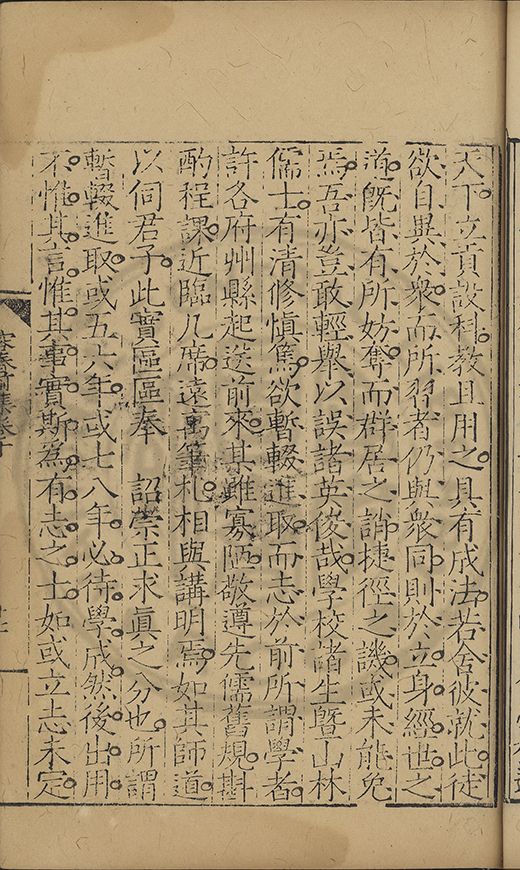 天下立貢設科教且用之具有成法若舍彼就此徒
欲自異於衆而所習者仍與衆同則於立身經世之
道既皆有所妨奪而群居之誚捷徑之譏或未能免
焉吾亦豈敢輕舉以誤諸英俊哉學校諸生暨山林
儒士有清修慎篤欲暫輟進取而志於前所謂學者
許各府州縣起送前來某雖寡陋敬遵先儒舊規斟
酌程課近臨几席遠寓筆札相與講明焉如其師道
以伺君子此實區區奉　詔崇正求眞之分也所謂
暫輟進取或五六年或七八年必待學成然後出用
不惟其言惟其事實斯爲有志之士如或立志未定